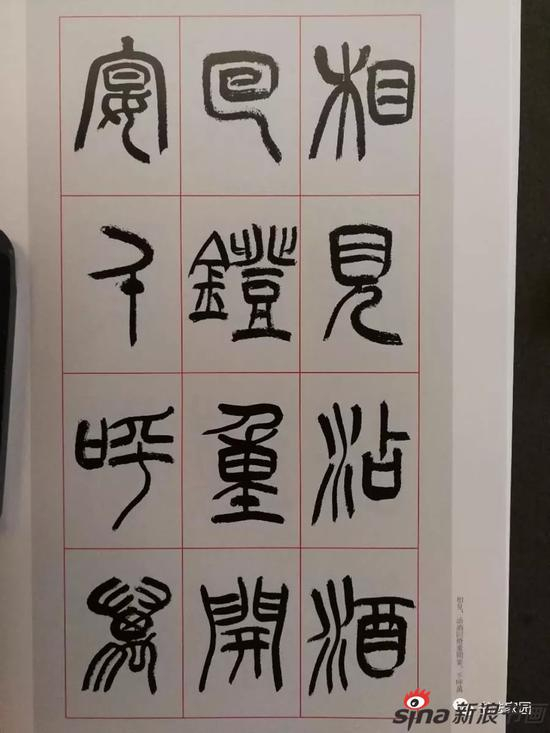 相見沾酒
回鐙重開
宴千呼萬
相見，酒回燈重開宴。千呼萬
sina新浪书画